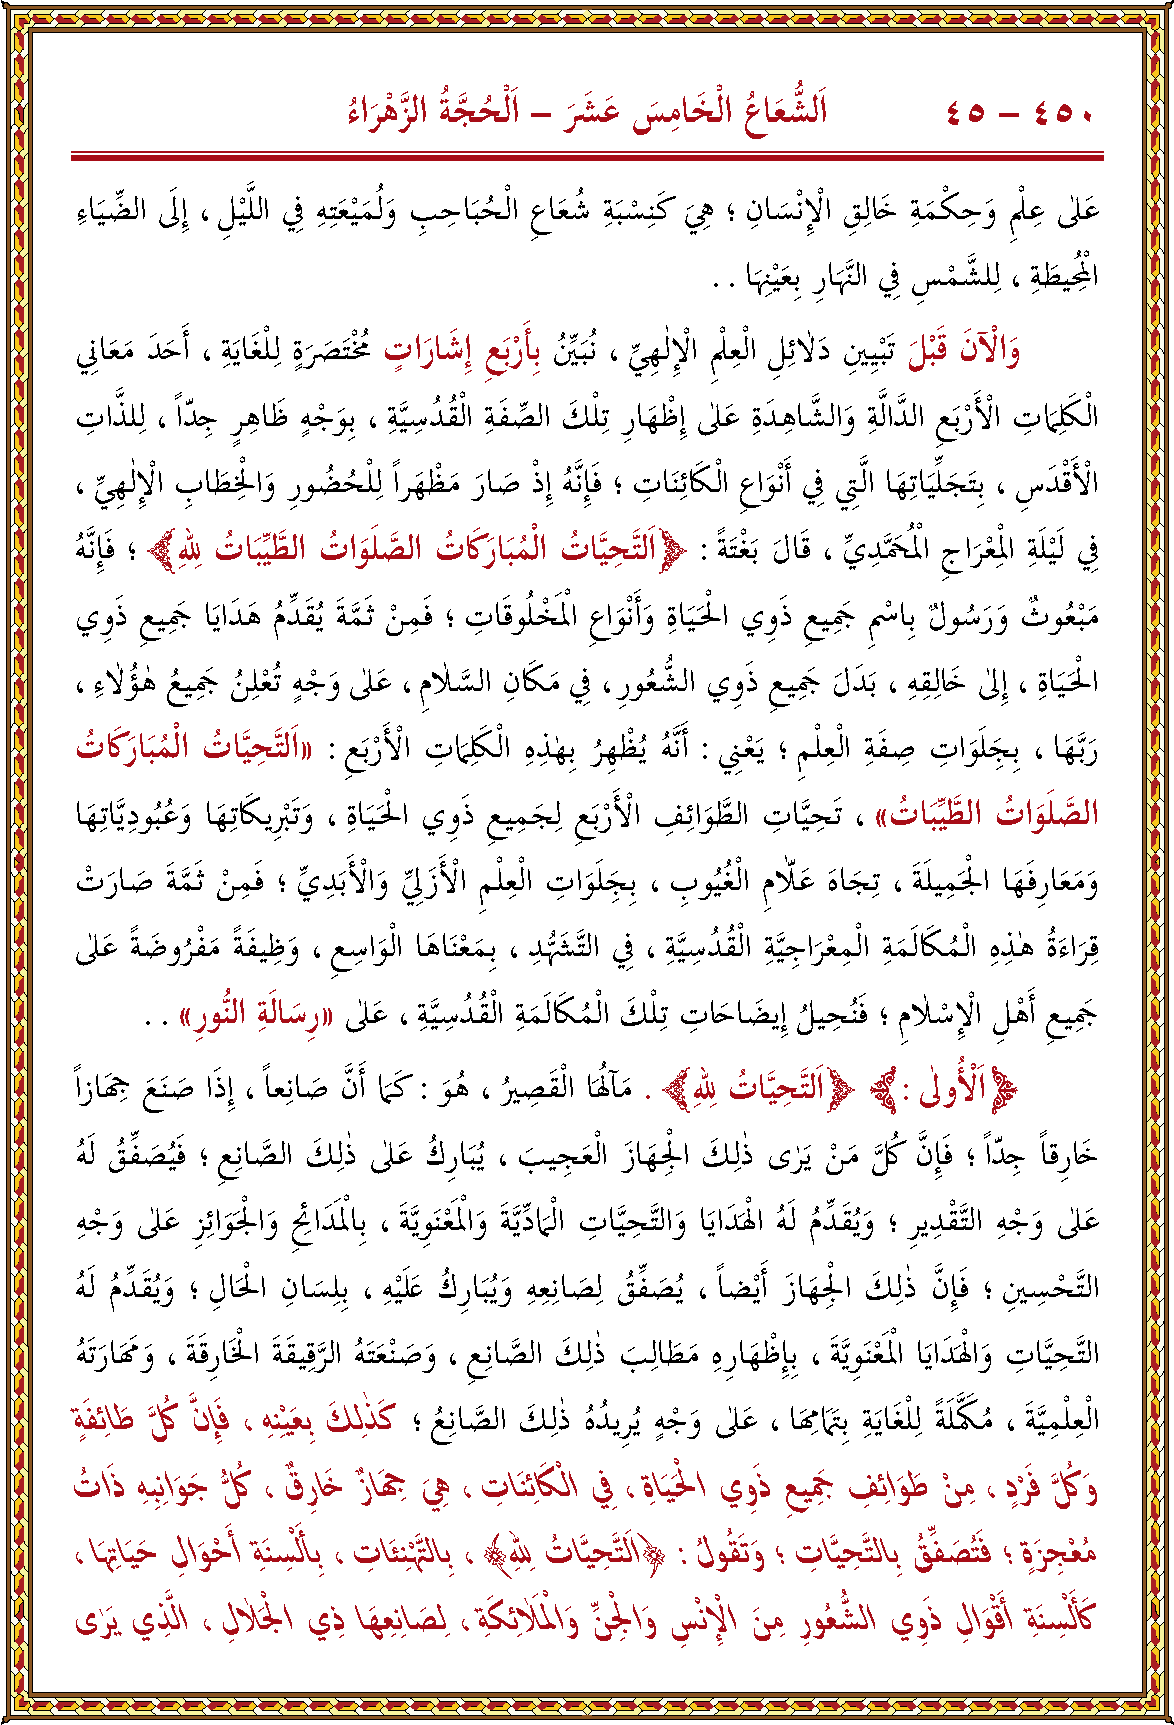 ٤٥٠ – ٤٥ اَلشُّعَاعُ الْخَامِسَ عَشَرَ – اَلْحُجَّةُ الزَّهْرَاءُ
عَلٰى عِلْمِ وَحِكْمَةِ خَالِقِ الْإِنْسَانِ ؛ هِيَ كَنِسْبَةِ شُعَاعِ الْحُبَاحِبِ وَلُمَيْعَتِهِ فِي اللَّيْلِ ، إِلَى الضِّيَاءِ
الْمُحِيطَةِ ، لِلشَّمْسِ فِي النَّهَارِ بِعَيْنِهَا . .
وَالْآنَ قَبْلَ تَبْيِينِ دَلَائِلِ الْعِلْمِ الْإِلٰهِيِّ ، نُبَيِّنُ بِأَرْبَعِ إِشَارَاتٍ مُخْتَصَرَةٍ لِلْغَايَةِ ، أَحَدَ مَعَانِي
الْكَلِمَاتِ الْأَرْبَعِ الدَّالَّةِ وَالشَّاهِدَةِ عَلٰى إِظْهَارِ تِلْكَ الصِّفَةِ الْقُدْسِيَّةِ ، بِوَجْهٍ ظَاهِرٍ جِدّاً ، لِلذَّاتِ
الْأَقْدَسِ ، بِتَجَلِّيَاتِهَا الَّتِي فِي أَنْوَاعِ الْكَائِنَاتِ ؛ فَإِنَّهُ إِذْ صَارَ مَظْهَراً لِلْحُضُورِ وَالْخِطَابِ الْإِلٰهِيِّ ،
فِي لَيْلَةِ الْمِعْرَاجِ الْمُحَمَّدِيِّ ، قَالَ بَغْتَةً : ﴿اَلتَّحِيَّاتُ الْمُبَارَكَاتُ الصَّلَوَاتُ الطَّيِّبَاتُ لِلّٰهِ﴾ ؛ فَإِنَّهُ
مَبْعُوثٌ وَرَسُولٌ بِاسْمِ جَمِيعِ ذَوِي الْحَيَاةِ وَأَنْوَاعِ الْمَخْلُوقَاتِ ؛ فَمِنْ ثَمَّةَ يُقَدِّمُ هَدَايَا جَمِيعِ ذَوِي
الْحَيَاةِ ، إِلٰى خَالِقِهِ ، بَدَلَ جَمِيعِ ذَوِي الشُّعُورِ ، فِي مَكَانِ السَّلَامِ ، عَلٰى وَجْهٍ تُعْلِنُ جَمِيعُ هٰؤُلَاءِ ،
رَبَّهَا ، بِجَلَوَاتِ صِفَةِ الْعِلْمِ ؛ يَعْنِي : أَنَّهُ يُظْهِرُ بِهٰذِهِ الْكَلِمَاتِ الْأَرْبَعِ : «اَلتَّحِيَّاتُ الْمُبَارَكَاتُ
الصَّلَوَاتُ الطَّيِّبَاتُ» ، تَحِيَّاتِ الطَّوَائِفِ الْأَرْبَعِ لِجَمِيعِ ذَوِي الْحَيَاةِ ، وَتَبْرِيكَاتِهَا وَعُبُودِيَّاتِهَا
وَمَعَارِفَهَا الْجَمِيلَةَ ، تِجَاهَ عَلَّامِ الْغُيُوبِ ، بِجَلَوَاتِ الْعِلْمِ الْأَزَلِيِّ وَالْأَبَدِيِّ ؛ فَمِنْ ثَمَّةَ صَارَتْ
قِرَاءَةُ هٰذِهِ الْمُكَالَمَةِ الْمِعْرَاجِيَّةِ الْقُدْسِيَّةِ ، فِي التَّشَهُّدِ ، بِمَعْنَاهَا الْوَاسِعِ ، وَظِيفَةً مَفْرُوضَةً عَلٰى
جَمِيعِ أَهْلِ الْإِسْلَامِ ؛ فَنُحِيلُ إِيضَاحَاتِ تِلْكَ الْمُكَالَمَةِ الْقُدْسِيَّةِ ، عَلٰى «رِسَالَةِ النُّورِ» . .
﴿اَلْأُولٰى :﴾ ﴿اَلتَّحِيَّاتُ لِلّٰهِ﴾ . مَآلُهَا الْقَصِيرُ ، هُوَ : كَمَا أَنَّ صَانِعاً ، إِذَا صَنَعَ جِهَازاً
خَارِقاً جِدّاً ؛ فَإِنَّ كُلَّ مَنْ يَرٰى ذٰلِكَ الْجِهَازَ الْعَجِيبَ ، يُبَارِكُ عَلٰى ذٰلِكَ الصَّانِعِ ؛ فَيُصَفِّقُ لَهُ
عَلٰى وَجْهِ التَّقْدِيرِ ؛ وَيُقَدِّمُ لَهُ الْهَدَايَا وَالتَّحِيَّاتِ الْمَادِّيَّةَ وَالْمَعْنَوِيَّةَ ، بِالْمَدَائِحِ وَالْجَوَائِزِ عَلٰى وَجْهِ
التَّحْسِينِ ؛ فَإِنَّ ذٰلِكَ الْجِهَازَ أَيْضاً ، يُصَفِّقُ لِصَانِعِهِ وَيُبَارِكُ عَلَيْهِ ، بِلِسَانِ الْحَالِ ؛ وَيُقَدِّمُ لَهُ
التَّحِيَّاتِ وَالْهَدَايَا الْمَعْنَوِيَّةَ ، بِإِظْهَارِهِ مَطَالِبَ ذٰلِكَ الصَّانِعِ ، وَصَنْعَتَهُ الرَّقِيقَةَ الْخَارِقَةَ ، وَمَهَارَتَهُ
الْعِلْمِيَّةَ ، مُكَمَّلَةً لِلْغَايَةِ بِتَمَامِهَا ، عَلٰى وَجْهٍ يُرِيدُهُ ذٰلِكَ الصَّانِعُ ؛ كَذٰلِكَ بِعَيْنِهِ ، فَإِنَّ كُلَّ طَائِفَةٍ
وَكُلَّ فَرْدٍ ، مِنْ طَوَائِفِ جَمِيعِ ذَوِي الْحَيَاةِ ، فِي الْكَائِنَاتِ ، هِيَ جِهَازٌ خَارِقٌ ، كُلُّ جَوَانِبِهِ ذَاتُ
مُعْجِزَةٍ ؛ فَتُصَفِّقُ بِالتَّحِيَّاتِ ؛ وَتَقُولُ : ﴿اَلتَّحِيَّاتُ لِلّٰهِ﴾ ، بِالتَّهْنِئَاتِ ، بِأَلْسِنَةِ أَحْوَالِ حَيَاتِهَا ،
كَأَلْسِنَةِ أَقْوَالِ ذَوِي الشُّعُورِ مِنَ الْإِنْسِ وَالْجِنِّ وَالْمَلَائِكَةِ ، لِصَانِعِهَا ذِي الْجَلَالِ ، الَّذِي يَرٰى